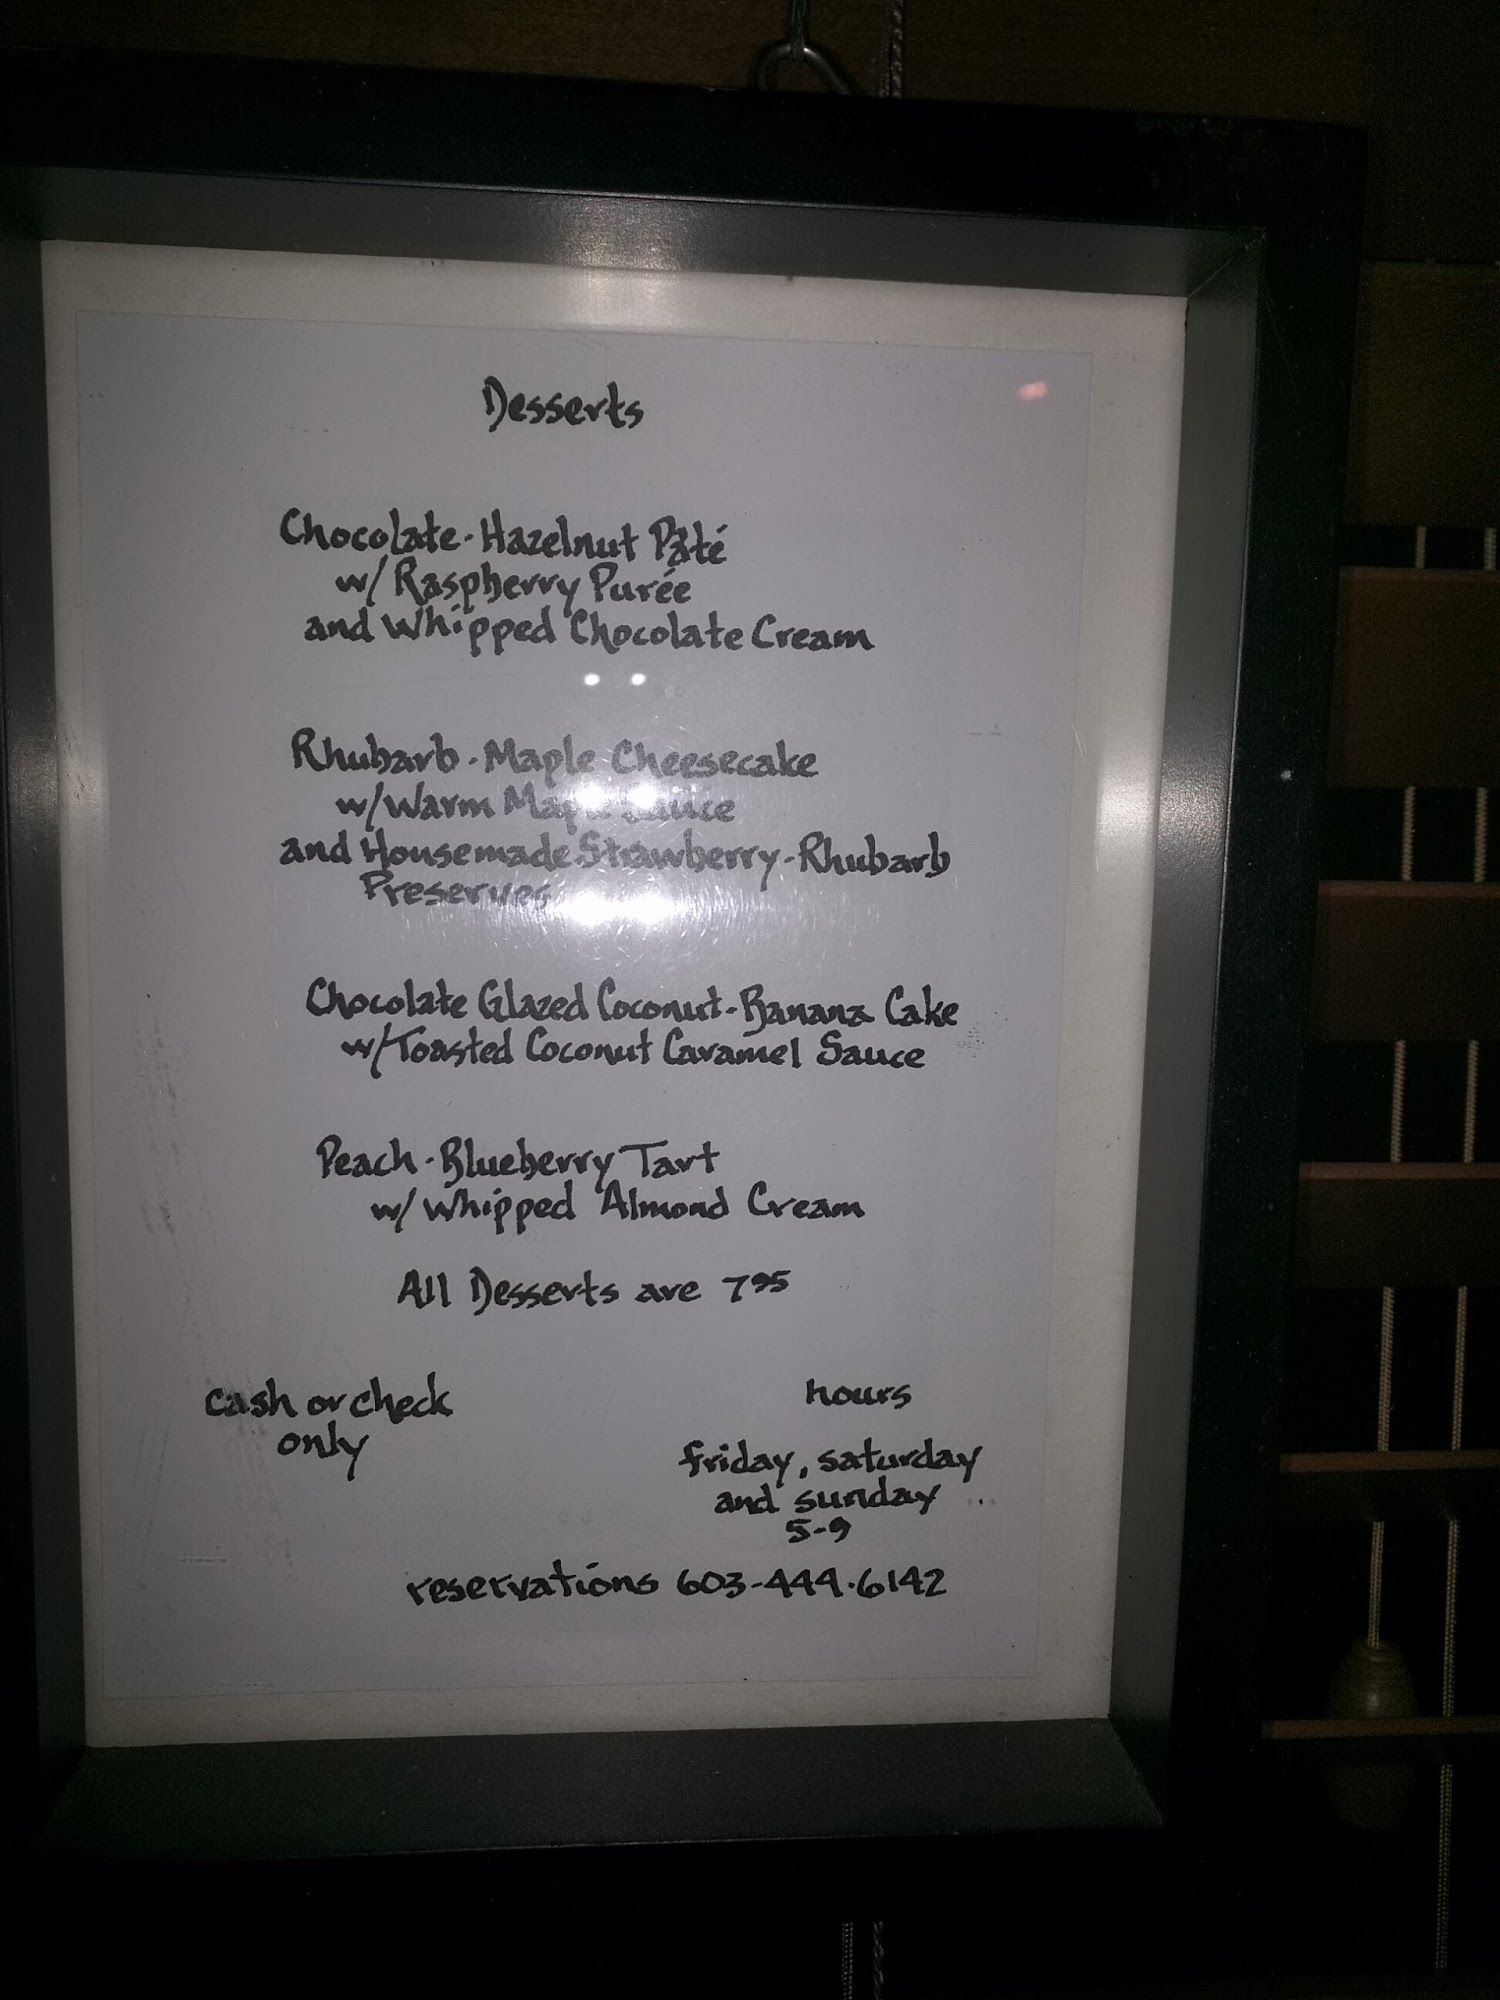 Desserts
Chocolate-Hazelnut Pâté
w/ Raspberry Purée
and Whipped Chocolate Cream
Rhubarb-Maple Cheesecake
w/Warm Maple Sauce
and Housemade Strawberry-Rhubarb
Preserves
Chocolate Glazed Coconut-Banana Cake
w/Toasted Coconut Caramel Sauce
Peach-Blueberry Tart
w/ Whipped Almond Cream
All Desserts are 7⁹⁵
cash or check
only
hours
friday, saturday
and sunday
5-9
reservations 603-444-6142